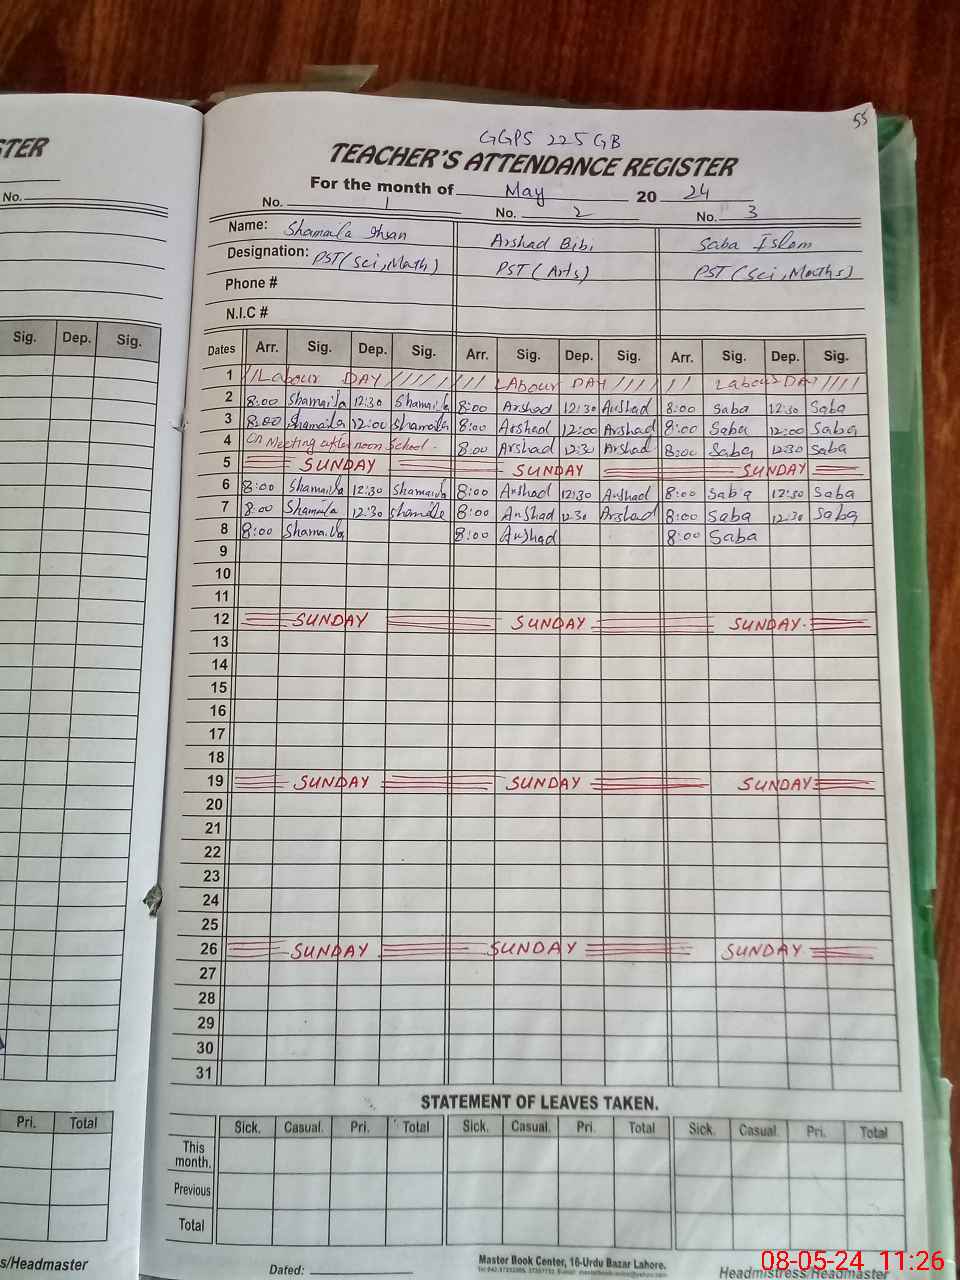 55
GGPS 225 GB
STER
TEACHER'S ATTENDANCE REGISTER
For the month of May 20 24
No.
No. 1 No. 2 No. 3
Name: Shamaila Ihsan Arshad Bibi Saba Islam
Designation: PST (Sci, Math) PST (Arts) PST (Sci, Maths)
Phone #
N.I.C #
Sig. Dep. Sig.
Dates Arr. Sig. Dep. Sig. Arr. Sig. Dep. Sig. Arr. Sig. Dep. Sig.
1 Labour DAY LAbour DAY Labour DAY
2 8:00 Shamaila 12:30 Shamaila 8:00 Arshad 12:30 Arshad 8:00 Saba 12:30 Saba
3 8:00 Shamaila 12:00 Shamaila 8:00 Arshad 12:00 Arshad 8:00 Saba 12:00 Saba
4 On Meeting after noon School. 8:00 Arshad 12:30 Arshad 8:00 Saba 12:30 Saba
5 SUNDAY SUNDAY SUNDAY
6 8:00 Shamaila 12:30 Shamaila 8:00 Arshad 12:30 Arshad 8:00 Saba 12:30 Saba
7 8:00 Shamaila 12:30 Shamaila 8:00 Arshad 12:30 Arshad 8:00 Saba 12:30 Saba
8 8:00 Shamaila 8:00 Arshad 8:00 Saba
9
10
11
12 SUNDAY SUNDAY SUNDAY
13
14
15
16
17
18
19 SUNDAY SUNDAY SUNDAY
20
21
22
23
24
25
26 SUNDAY SUNDAY SUNDAY
27
28
29
30
31
STATEMENT OF LEAVES TAKEN.
Pri. Total
Sick. Casual. Pri. Total Sick. Casual. Pri. Total Sick. Casual. Pri. Total
This month.
Previous
Total
s/Headmaster
Dated:
Master Book Center, 16-Urdu Bazar Lahore.
Headmistress/Headmaster
08-05-24 11:26